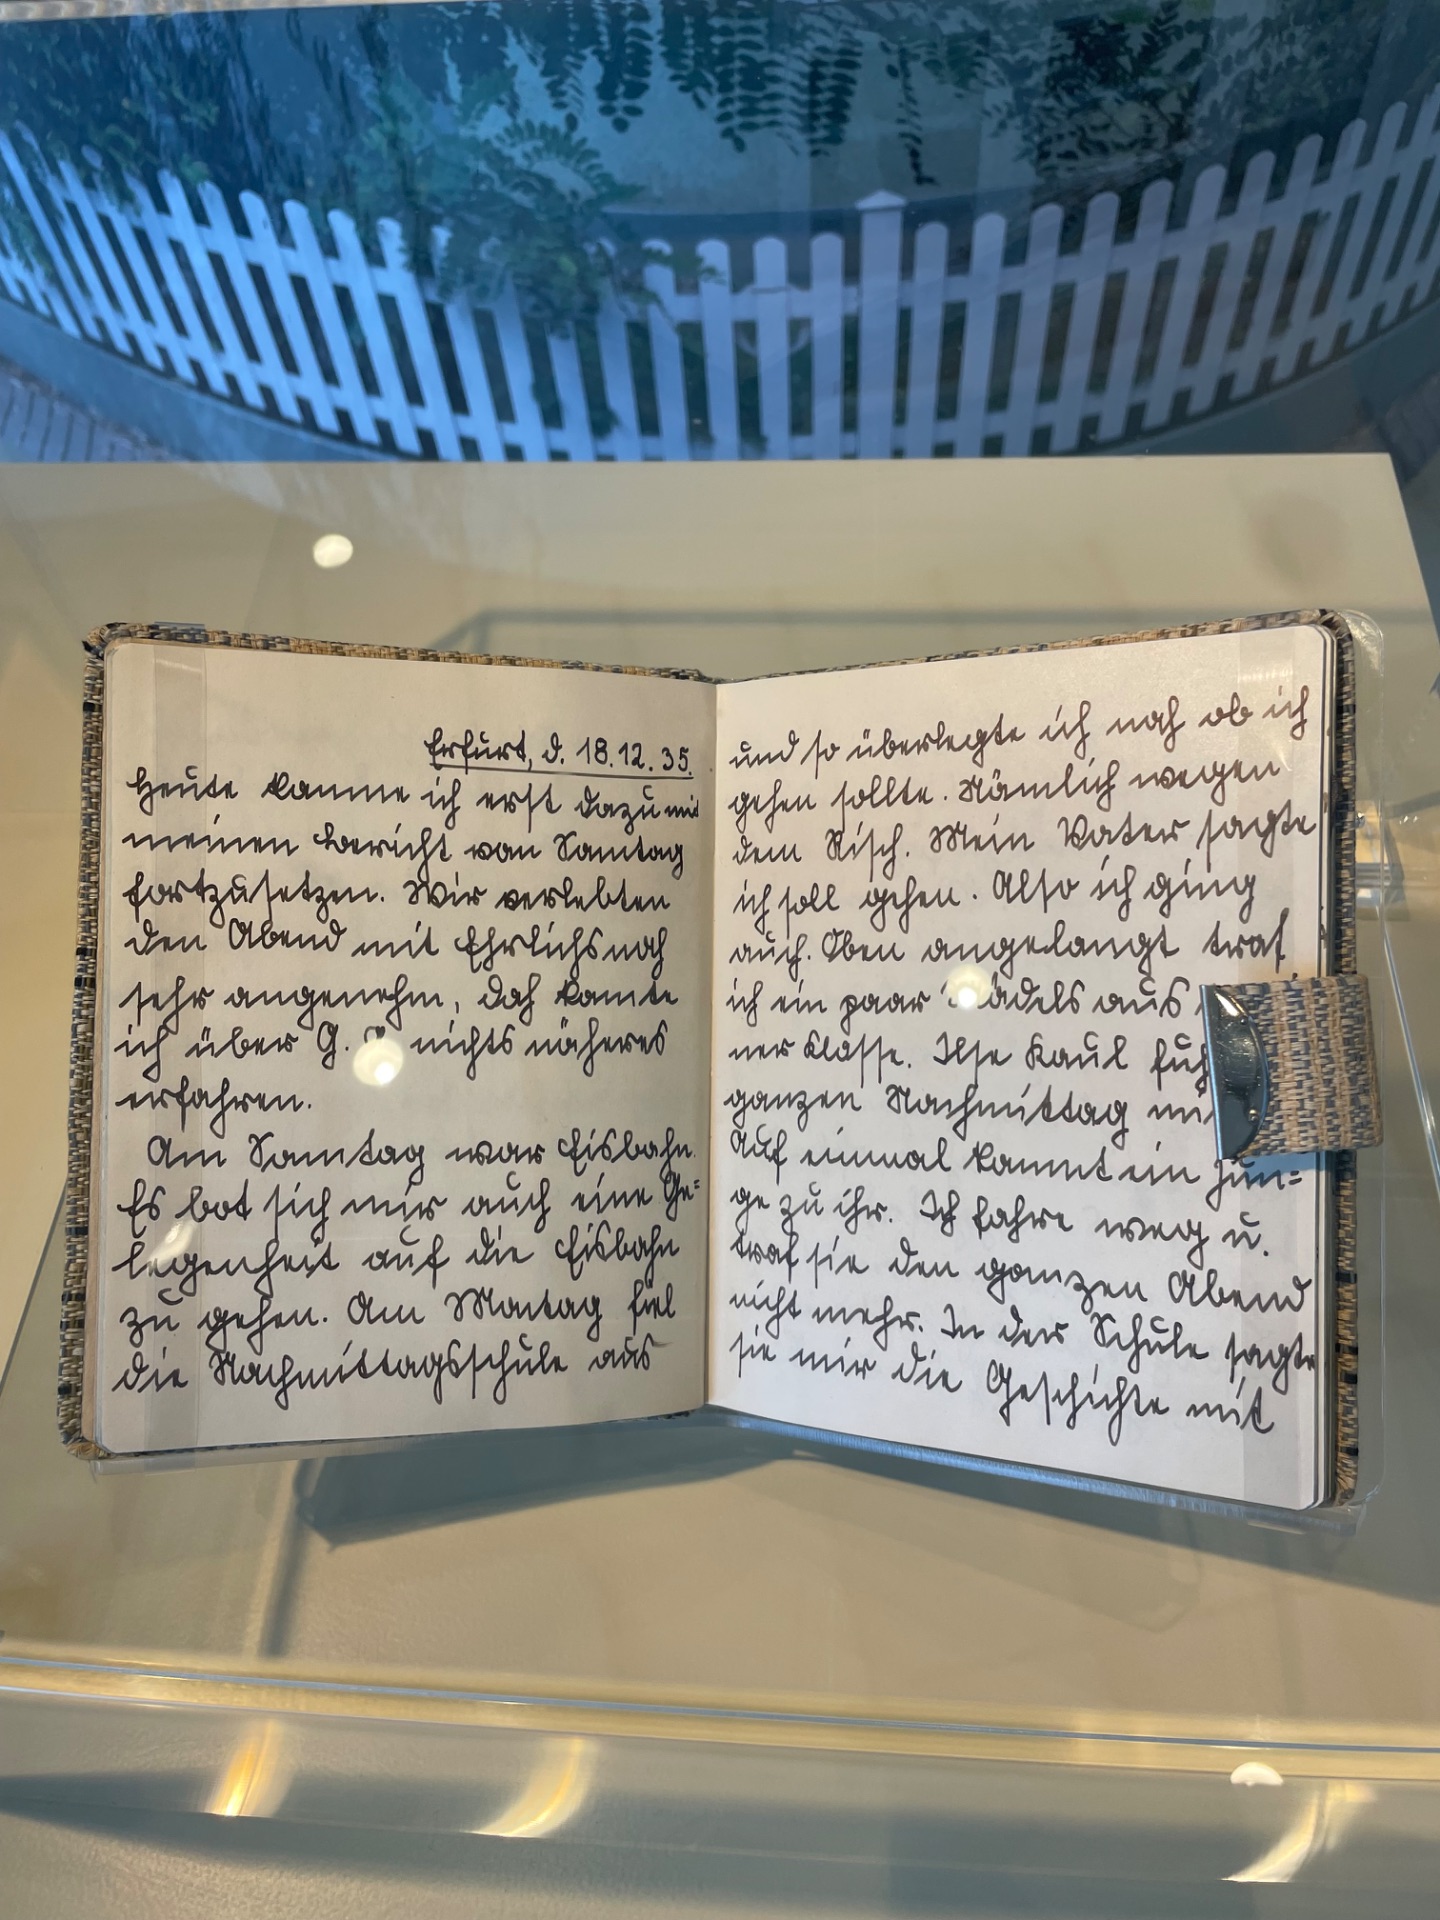 Erfurt, d. 18.12.35.
Heute komme ich erst dazu mir
meinen Bericht von Sonntag
fortzusetzen. Wir verlebten
den Abend mit Ehrlichs noch
sehr angenehm, doch konnte
ich über G. nichts näheres
erfahren.
Am Sonntag war Eisbahn.
Es bot sich mir auch eine Ge=
legenheit auf die Eisbahn
zu gehen. Am Montag fiel
die Nachmittagsschule aus
und so überlegte ich noch ob ich
gehen sollte. Nämlich wegen
dem Risch. Mein Vater sagte
ich soll gehen. Also ich ging
auch. Oben angelangt traf
ich ein paar Mädels aus
ner Klasse. Ilse Kaul fuh
ganzen Nachmittag mi
Auf einmal kommt ein Jun=
ge zu ihr. Ich fahre weg u.
traf sie den ganzen Abend
nicht mehr. In der Schule sagte
sie mir die Geschichte mit